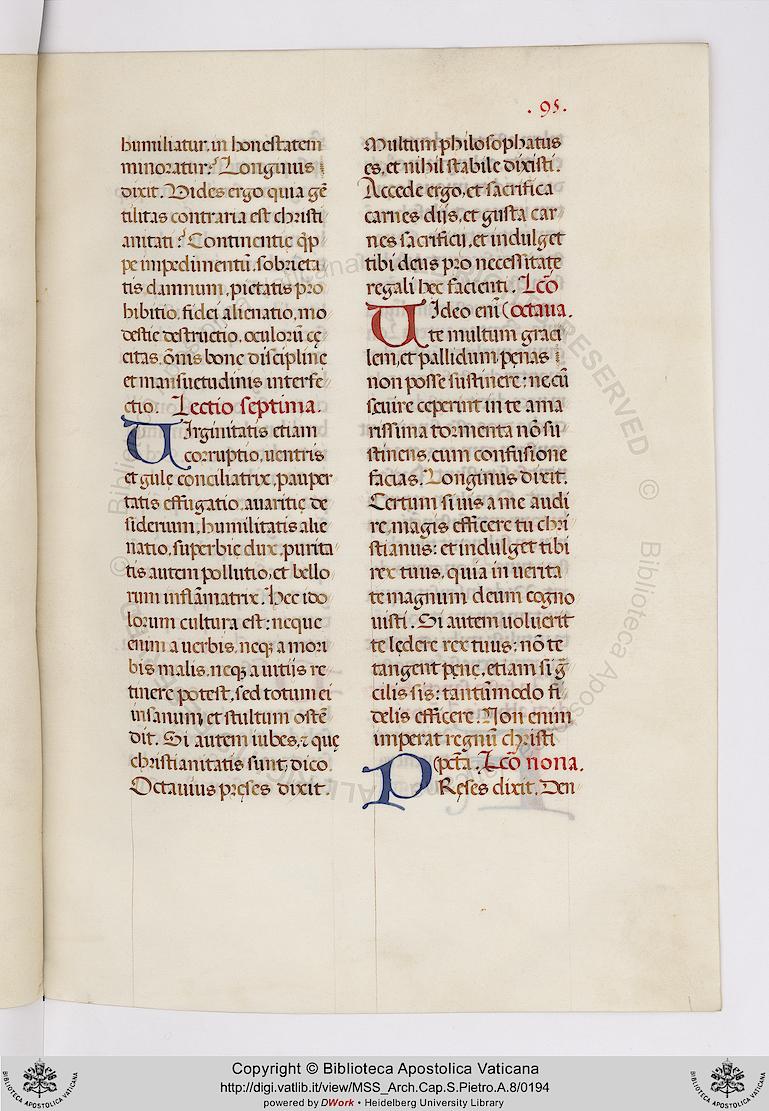 . 95.
humiliatur. in honestatem
minoratur. Longinus
dixit. Vides ergo quia gē
tilitas contraria est christi
anitati? Continentię q̄p
pe impedimentū. sobrieta
tis damnum, pietatis pro
hibitio. fidei alienatio, mo
destie destructio. oculorū cę
citas. ōnis bone discipline
et mansuetudinis interfe
ctio. Lectio septima.
Uirginitatis etiam
corruptio, uentris
et gulę conciliatrix, pauper
tatis effugatio. auaritię de
siderium, humilitatis alie
natio, superbie dux. purita
tis autem pollutio, et bello
rum inflāmatrix. Hec ido
lorum cultura est: neque
enim a uerbis. neq; a mori
bis malis. neq; a uitiis re
tinere potest, sed totum ei
insanum et stultum ostē
dit. Si autem iubes, ⁊ quę
christianitatis sunt, dico.
Octauius pręses dixit.
Multum philosophatus
es, et nihil stabile dixisti.
Accede ergo, et sacrifica
carnes diis, et gusta car
nes sacrificii, et indulget
tibi deus pro necessitate
regali hec facienti. Lcō
octaua.
Uideo eni
te multum graci
lem, et pallidum pęnas
non posse sustinere: ne cū
seuire ceperint in te ama
rissima tormenta nō su
stinens, cum confusione
facias. Longinus dixit.
Certum si uis a me audi
re, magis efficere tu chri
stianus: et indulget tibi
rex tuus, quia in uerita
te magnum deum cogno
uisti. Si autem uoluerit
te lędere rex tuus: nō te
tangent penę, etiam si g̃
cilis sis: tantūmodo fi
delis efficere. Non enim
imperat regnū christi
pct̄a. Lcō nona.
Pręses dixit. Den
Copyright © Biblioteca Apostolica Vaticana
http://digi.vatlib.it/view/MSS_Arch.Cap.S.Pietro.A.8/0194
powered by DWork • Heidelberg University Library
BIBLIOTECA APOSTOLICA VATICANA
BIBLIOTECA APOSTOLICA VATICANA